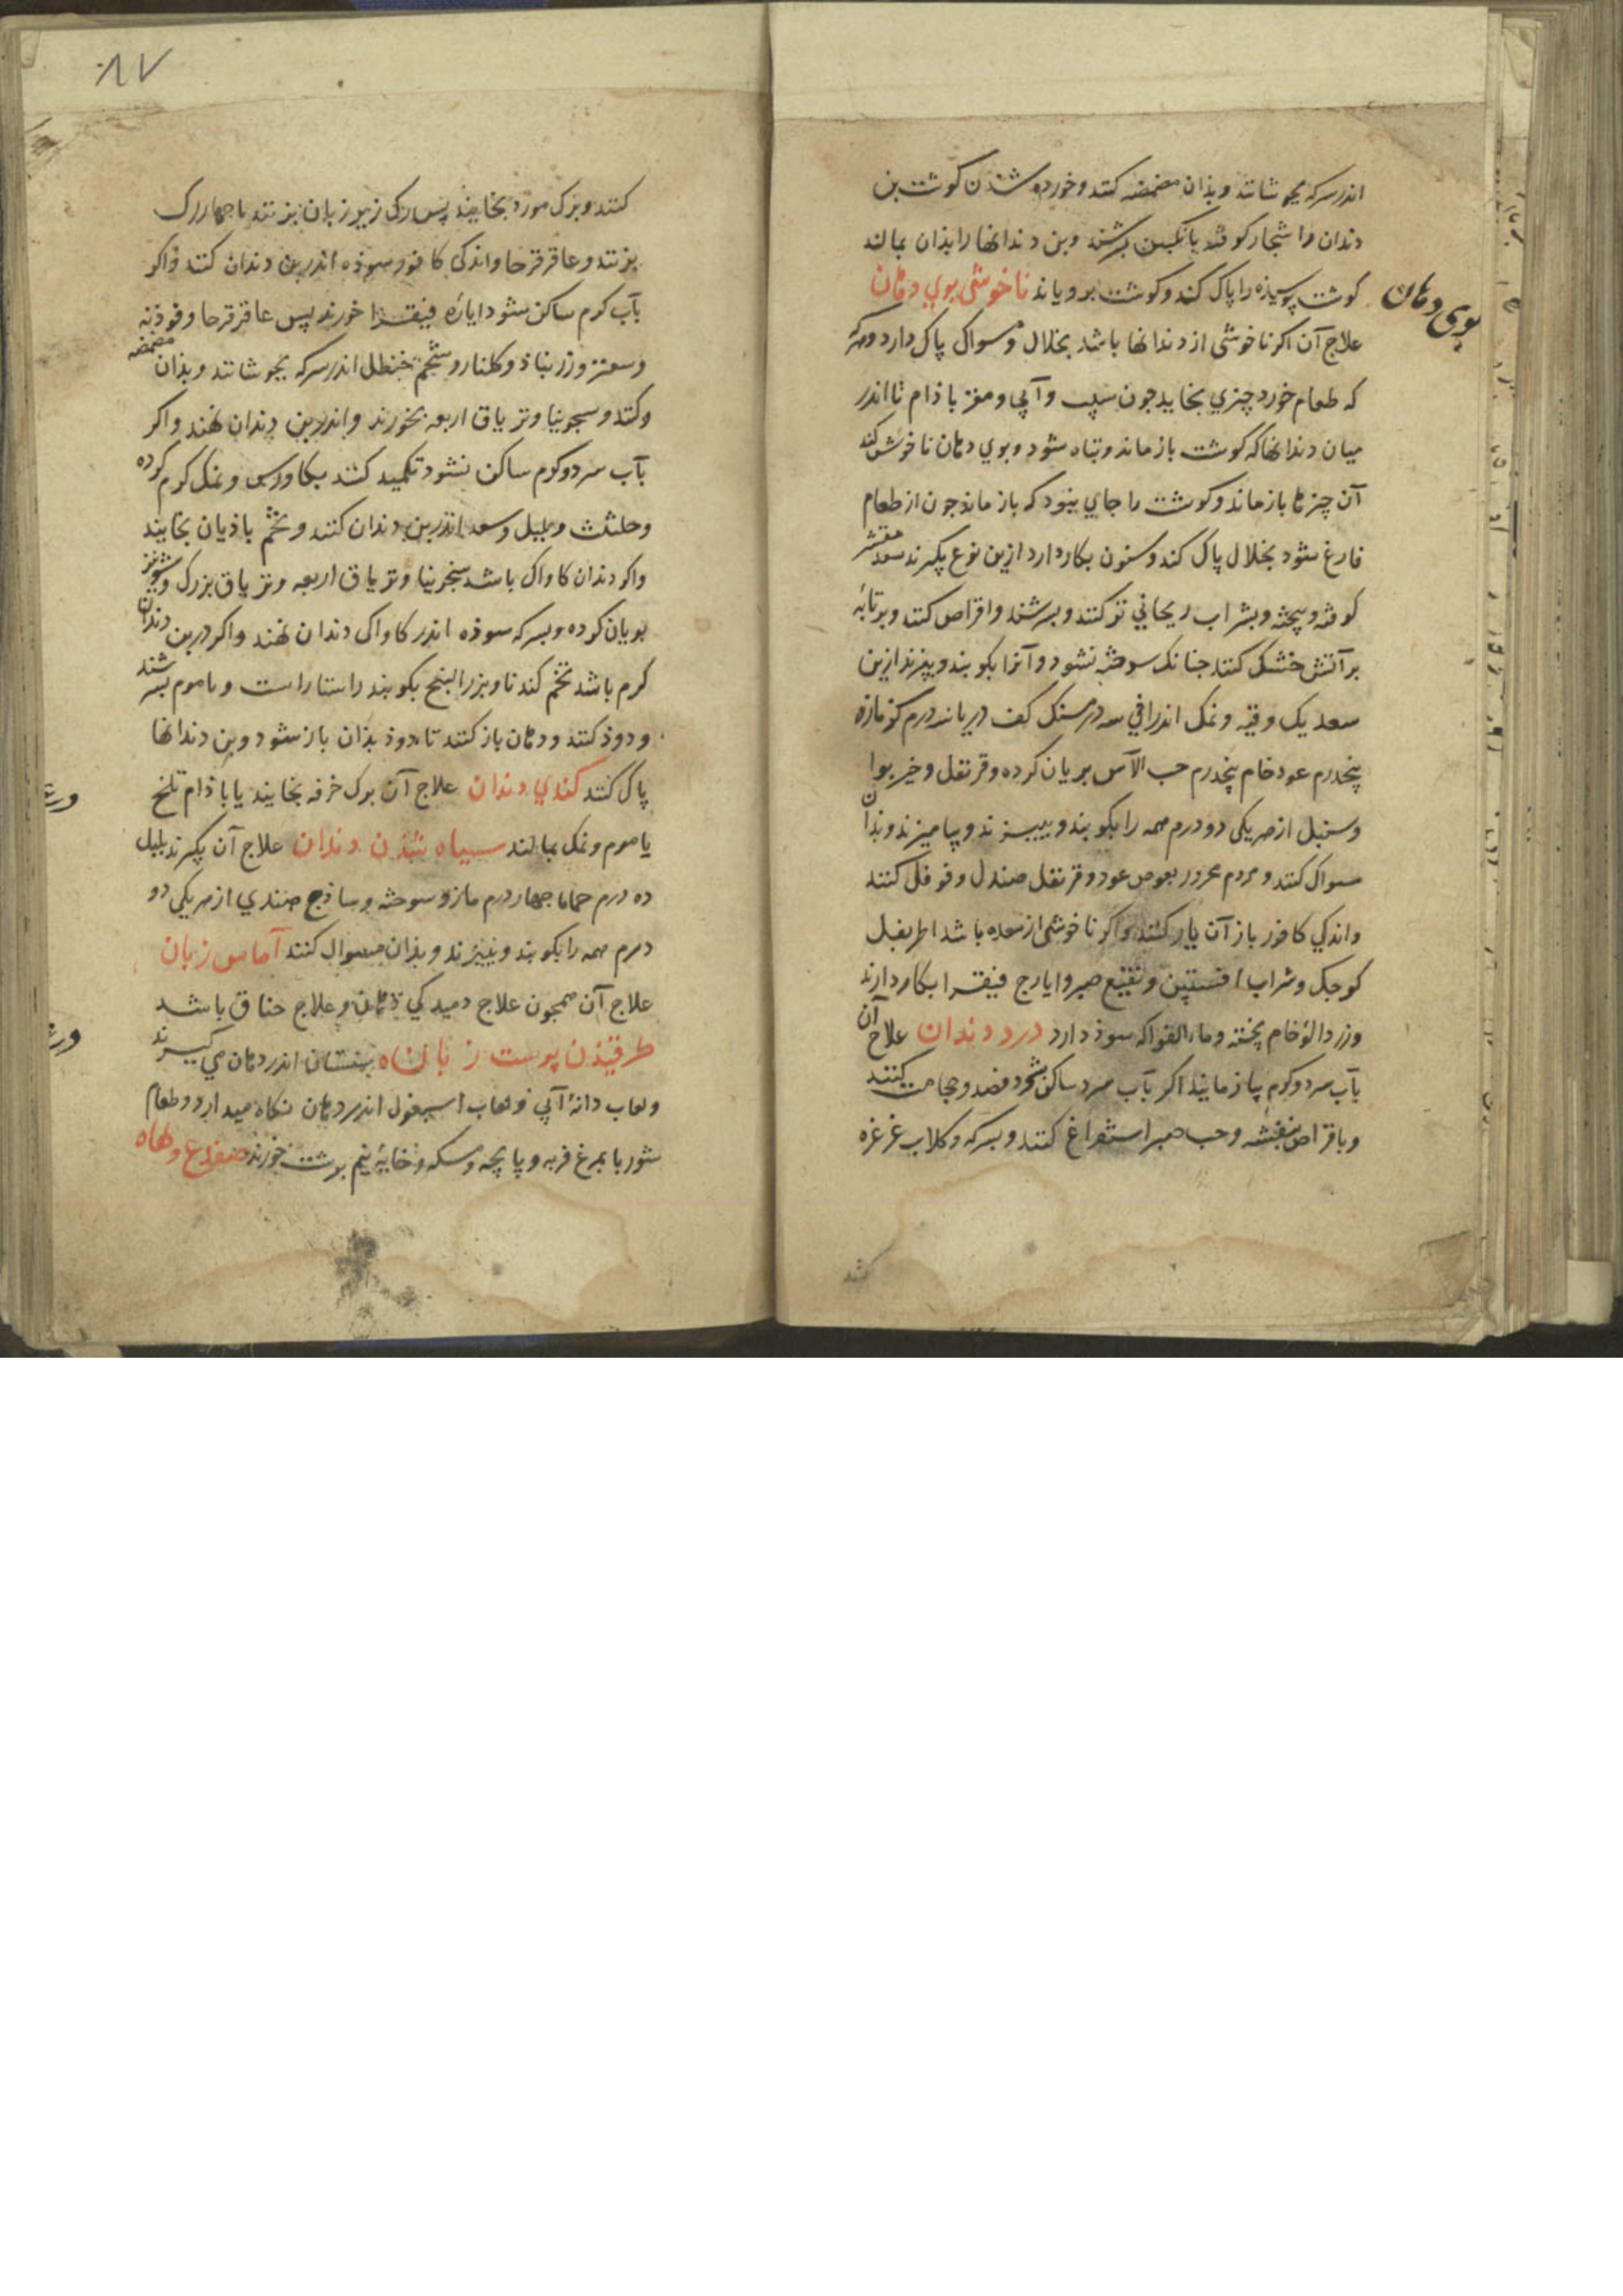 اندر سرکه بجوشانند و بذان مضمضه کنند و خورده شدن کوشت بن
دندان را شجار کوفته بانکبین بسرشند و بن دندانها را بذان بمالند
کوشت پوسیذه را پاک کند و کوشت برویاند ناخوشی بوی دهان
بوی دهان
علاج آن اکر ناخوشی از دندانها باشد بخلال و مسواک پاک دارد و هرکه
که طعام خورد چیزی بخایید جون سیب و آبی و مغز باذام تا اندر
میان دندانها که کوشت باز ماند و تباه شود و بوی دهان ناخوش کند
آن چیزها باز ماند و کوشت را جای نبود که باز ماند جون از طعام
فارغ شود بخلال پاک کند و سنون بکار دارد ازین نوع بکیرند سعد مقشر
کوفته و بیخته و بشراب ریحانی تر کنند و بسرشند و اقراص کنند و بر تابه
بر آتش خشک کنند جنانک سوخته نشود و آنرا بکوبند و ببیزند ازین
سعد یک وقیه و نمک اندرانی سه درمسنک کف دریا نه درم کزمازه
پنجدرم عود خام پنجدرم حب الآس بریان کرده و قرنفل و خیربوا
و سنبل از هریکی دو درم همه را بکوبند و ببیزند و بیامیزند و بذان
مسواک کنند و مردم محرور بعوض عود و قرنفل صندل و فوفل کنند
و اندکی کافور باز آن یار کنند و اکر ناخوشی از معده باشد اطریفل
کوجک و شراب افسنتین و نقیع صبر و ایارج فیقرا بکار دارند
و زردالو خام پخته و ماء الفواکه سوذ دارد درد دندان علاج آن
بآب سرد و کرم بیازمایند اکر بآب سرد ساکن شود فصد و حجامت کنند
و باقراص بنفشه و حب صبر استفراغ کنند و بسرکه و کلاب غرغره
۸۷
کنند و برک مورد بخایند پس رکی زیر زبان بزنند یا جهار رک
بزنند و عاقرقرحا و اندکی کافور سوذه اندر بن دندان کنند و اکر
بآب کرم ساکن شود ایاره فیقرا خورند پس عاقرقرحا و فوذنه
و سعتر و زرنباذ و کلنار و شحم حنظل اندر سرکه بجوشانند و بذان مضمضه
و کنند و سجرینا و تریاق اربعه بخورند و اندر بن دندان نهند و اکر
بآب سرد و کرم ساکن نشود تکمید کنند بکاورس و نمک کرم کرده
و حلتیت و پلپل و سعد اندر بن دندان کنند و تخم باذیان بخایند
و اکر دندان کاواک باشد سنجرینا و تریاق اربعه و تریاق بزرک و شونیز
بریان کرده و بسرکه سوذه اندر کاواکی دندان نهند و اکر در بن دندان
کرم باشد تخم کندنا و بزر البنج بکوبند راستاراست و با موم بسرشند
و دوذ کنند و دهان باز کنند تا دوذ بذان باز شود و بن دندانها
پاک کنند کندی دندان علاج آن برک خرفه بخایند یا باذام تلخ
یا موم و نمک بمالند سیاه شذن دندان علاج آن بکیرند پلپل
ده درم حماما جهار درم مازو سوخته و ساذج هندی از هریکی دو
درم همه را بکوبند و ببیزند و بذان مسواک کنند آماس زبان
علاج آن همجون علاج دمیدکی دهان و علاج خناق باشد
طرقیذن پوست زبان سبستان اندر دهان می کیرند
و لعاب دانه آبی و لعاب اسبغول اندر دهان نکاه میدارد و طعام
شوربا بمرغ فربه و پاپچه و مسکه و خایه نیم برشت خورند ضفدع و لهاه